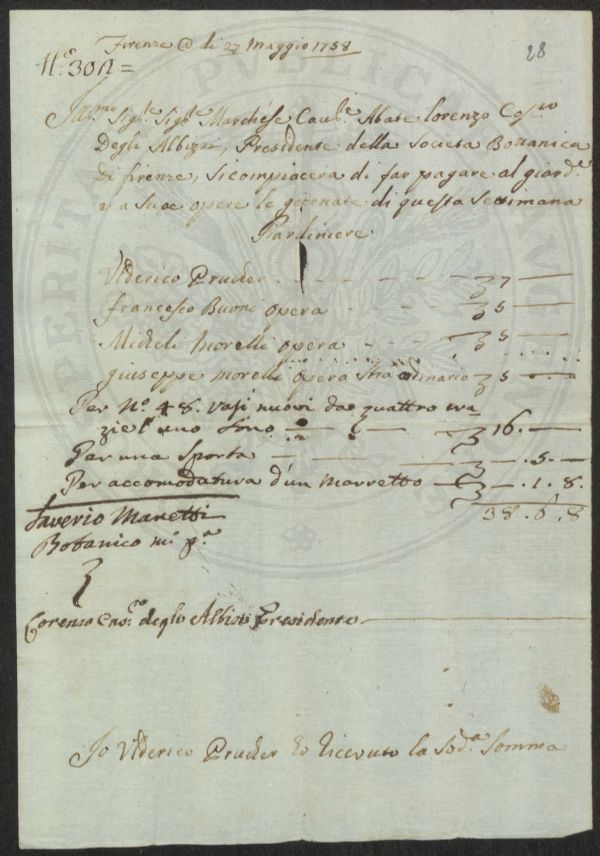 Firenze @ di 27 Maggio 1758
28
N.º 301 =
Ill.mo Sig.re Sig.re Marchese Cav.re Abate Lorenzo
Degli Albizzi, Presidente della Società Bottanica
di firenze, Si compiacerà di far pagare al giard.e
e a Sue opere le giornate di questa Settimana
Giardiniere
Ulderico Prucher — 7 —
francesco Buoni opera — 5 —
Micheli Morelli opera — 5 —
giuseppe morelli opera Straordinario 5 —
Per N.º 48. vasi nuovi da quattro cra
zie l'uno Sono — 16. —
Per una Sporta — . 5. —
Per accomodatura d'un marretto — . 1. 8.
38. 6. 8
Saverio Manetti
Botanico m.º p.ª
Lorenzo Cav.re degli Albizi Presidente
Io Ulderico Prucher ho ricevuto la Sod.a Somma
PERITA PVBLICAE